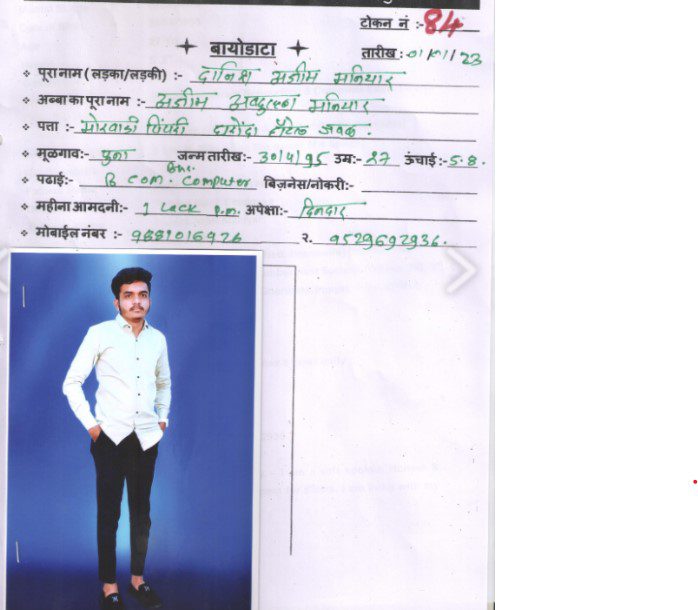 टोकन नं :- 84
बायोडाटा
तारीख : 01/01/23
पूरा नाम (लड़का/लड़की) :- दानिश अजीम मनियार
अब्बा का पूरा नाम :- अजीम अब्दुल्ला मनियार
पत्ता :- मोरवाडी पिंपरी हॉटेल जवळ.
मूळगाव:- पुना जन्म तारीख:- 30/4/95 उम्र:- 27 ऊंचाई:- 5.8.
पढाई:- B com. Computer बिज़नेस/नोकरी:- Bus.
महीना आमदनी:- 1 Lack p.m. अपेक्षा:- दिनदार
मोबाईल नंबर :- 9881016926 २. 9529692936.